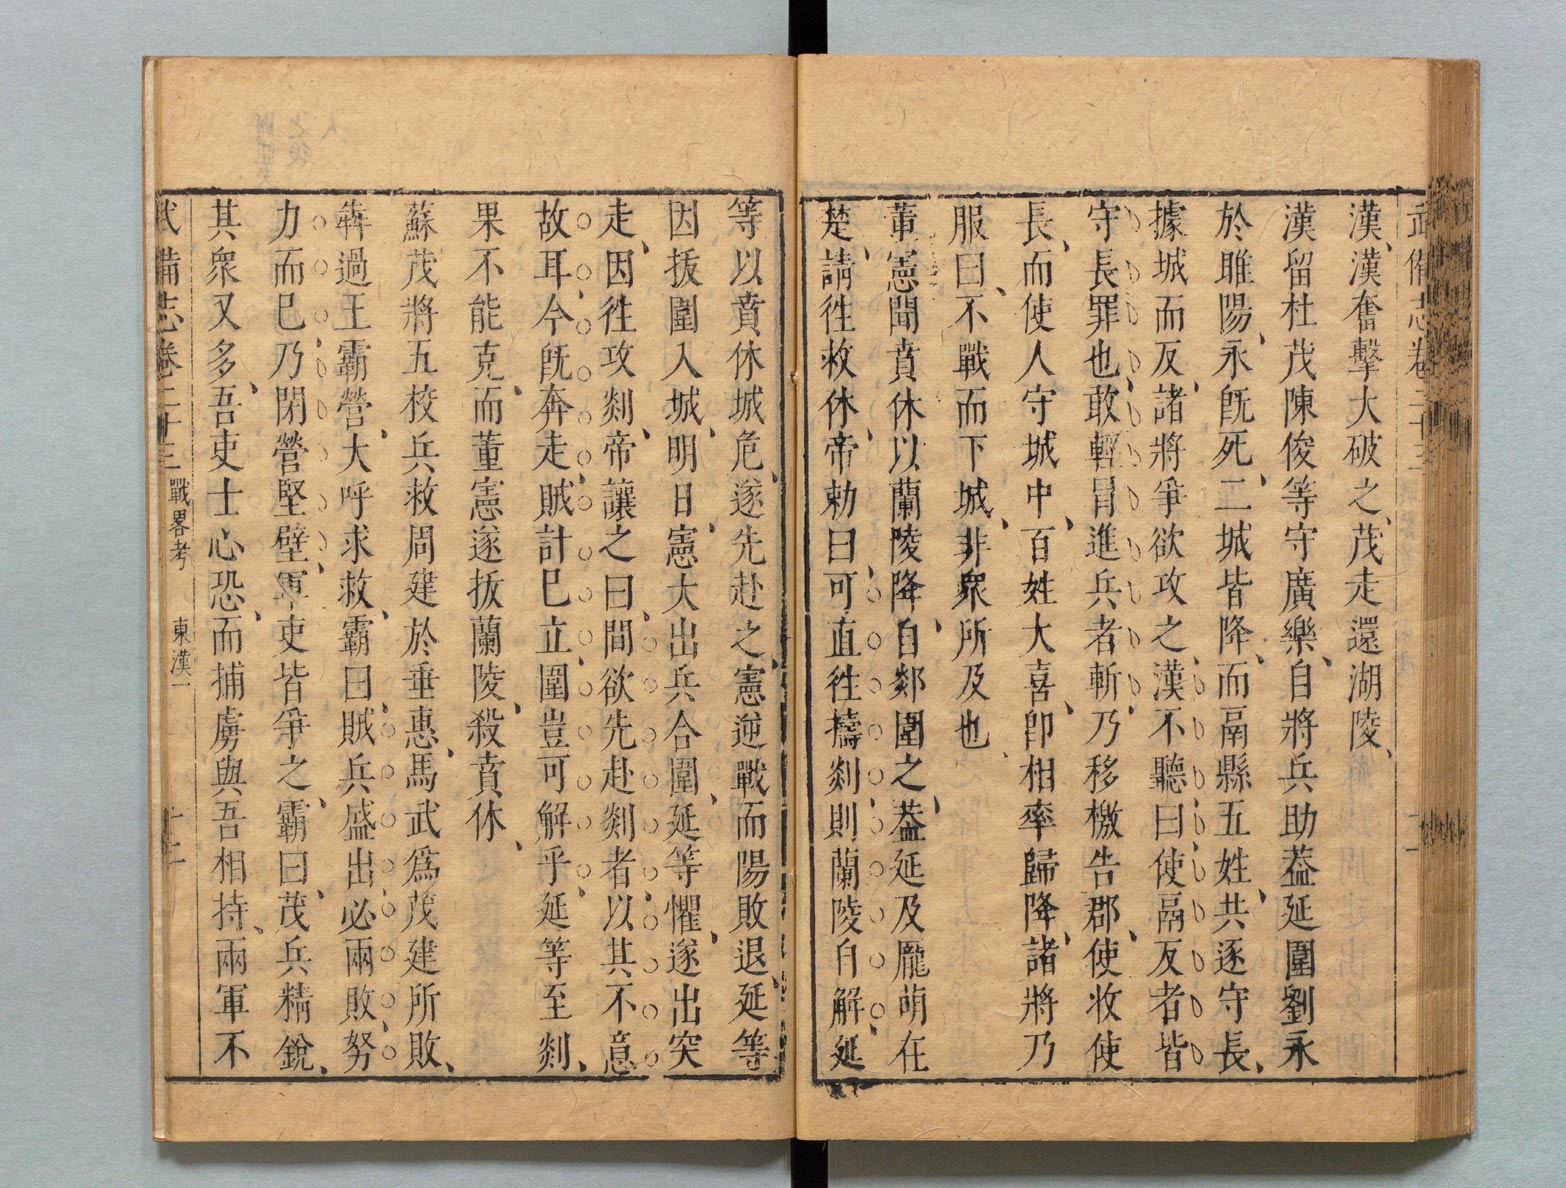 武備志卷二十三
漢、漢奮擊大破之、茂走還湖陵、
漢留杜茂陳俊等守廣樂、自將兵助葢延圍劉永
於睢陽、永旣死、二城皆降、而鬲縣五姓、共逐守長、
據城而反、諸將爭欲攻之、漢不聽曰使鬲反者皆
守長罪也、敢輕冐進兵者斬、乃移檄告郡、使收使
長、而使人守城中、百姓大喜、卽相率歸降、諸將乃
服曰、不戰而下城、非衆所及也
董憲聞賁休以蘭陵降、自郯圍之、葢延及龐萌在
楚、請徃救休、帝勅曰、可直徃擣郯則蘭陵自解、延
等以賁休城危、遂先赴之、憲逆戰而陽敗退、延等
因拔圍入城、明日、憲大出兵合圍、延等懼、遂出突
走、因徃攻郯、帝讓之曰、間欲先赴郯者以其不意
故耳今旣奔走、賊計已立、圍豈可解乎延等至郯、
果不能克、而董憲遂拔蘭陵、殺賁休、
蘇茂將五校兵救周建於垂惠、馬武爲茂建所敗、
犇過王霸營、大呼求救、霸曰、賊兵盛出必兩敗努
力而已、乃閉營堅壁、軍吏皆爭之、霸曰、茂兵精銳、
其衆又多、吾吏士心恐、而捕虜與吾相持、兩軍不
武備志卷二十三 戰畧考 東漢一 十二